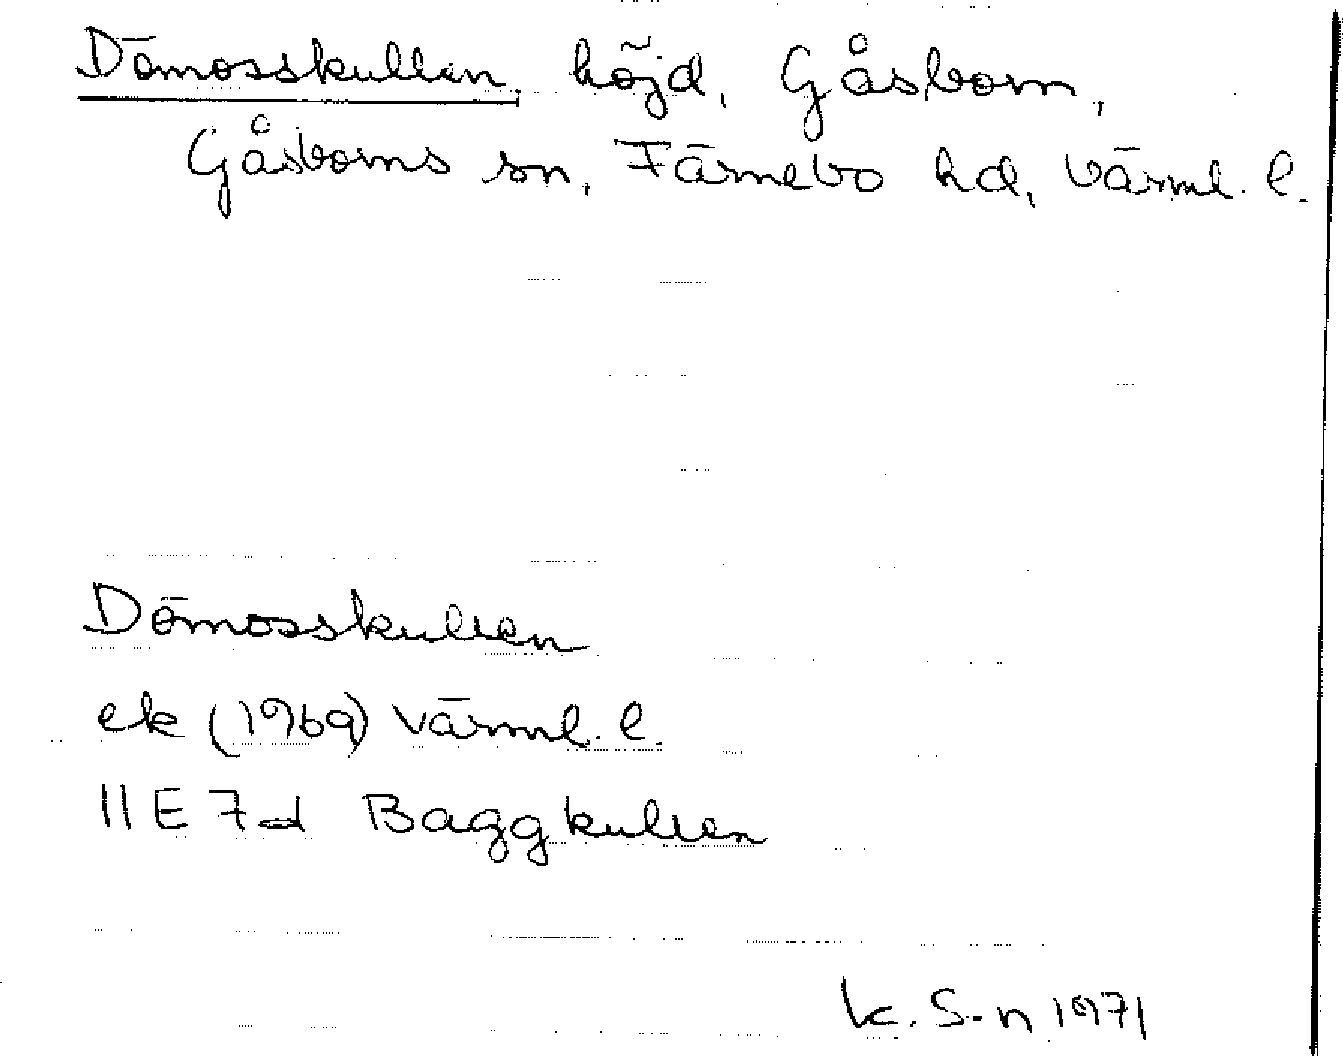 Dömosskullen, höjd, Gåsborn,
Gåsborns sn, Färnebo hd, Värml. l.
Dömosskullen
ek (1969) Värml. l.
11E 7d Baggkullen
K. S-n 1971